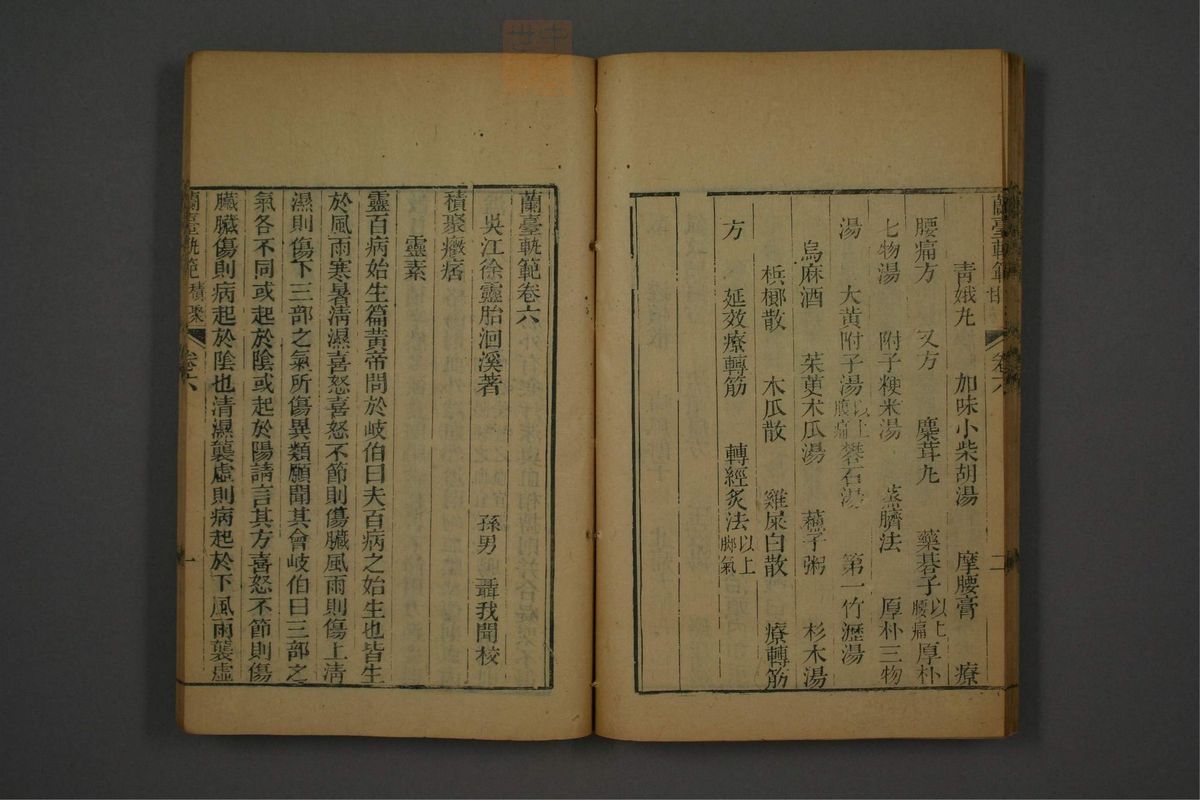 蘭臺軌範 卷六 二
青娥丸 加味小柴胡湯 摩腰膏 療
腰痛方 又方 麋茸丸 藥碁子以上腰痛 厚朴
七物湯 附子粳米湯 蒸臍法 厚朴三物
湯 大黃附子湯以上腹痛 礬石湯 第一竹瀝湯
烏麻酒 茱萸木瓜湯 蘇子粥 杉木湯
梹榔散 木瓜散 雞屎白散 療轉筋
方 延效療轉筋 轉經炙法以上脚氣
蘭臺軌範卷六
吳江徐靈胎洄溪著 孫男 聶我聞校
積聚癥痞
靈素
靈百病始生篇黃帝問於岐伯曰夫百病之始生也皆生
於風雨寒暑淸濕喜怒喜怒不節則傷臟風雨則傷上淸
濕則傷下三部之氣所傷異類願聞其會岐伯曰三部之
氣各不同或起於陰或起於陽請言其方喜怒不節則傷
臟臟傷則病起於陰也清濕襲虛則病起於下風雨襲虛
蘭臺軌範 積聚 卷六 一